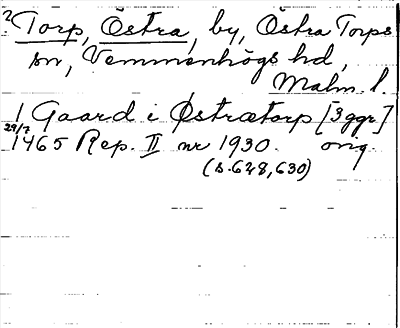 ? Torp, Östra, by, Östra Torps
sn, Vemmenhögs hd,
Malm. l.
1 Gaard i Østrætorp [3 ggr]
29/7
1465 Rep. II nr 1930. orig.
(s. 628, 630)